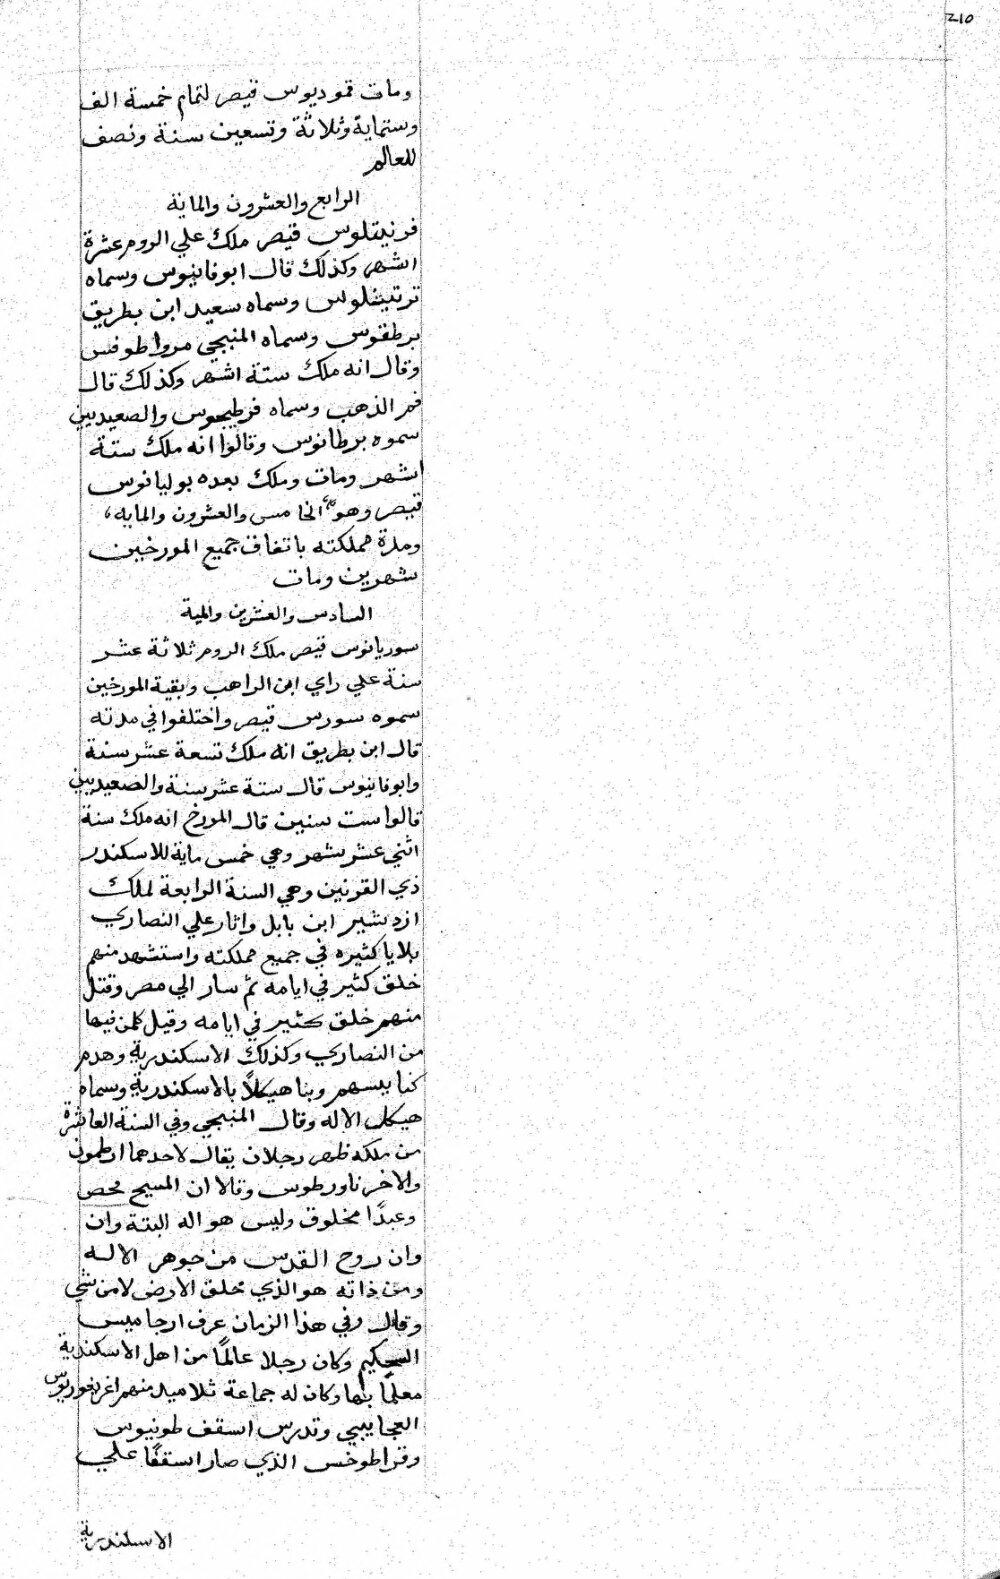 210
ومات قموديوس قيصر لتمام خمسة الف
وستماية وثلاثة وتسعين سنة ونصف
للعالم
الرابع والعشرون والماية
فرنيقلوس قيصر ملك علي الروم عشرة
اشهر وكذلك قال ابوفانيوس وسماه
ترتبيقلوس وسماه سعيد ابن بطريق
برطقوس وسماه المنبجي مرواطوفس
وقال انه ملك ستة اشهر وكذلك قال
فم الذهب وسماه فرطيجوس والصعيديين
سموه برطانوس وقالوا انه ملك ستة
اشهر ومات وملك بعده بوليانوس
قيصر وهو الخامس والعشرون والمايه
ومدة مملكته باتفاق جميع المورخين
شهرين ومات
السادس والعشرين والمية
سوريانوس قيصر ملك الروم ثلاثة عشر
سنة علي راي ابن الراهب وبقية المورخين
سموه سورس قيصر واختلفوا في مدته
قال ابن بطريق انه ملك تسعة عشر سنة
وابوفانيوس قال ستة عشر سنة والصعيديين
قالوا ست سنين قال المورخ انه ملك سنة
اثني عشر شهر وهي خمس ماية للاسكندر
ذي القرنين وهي السنة الرابعة لملك
ازدشير ابن بابل واثار علي النصاري
بلايا كثيره في جميع مملكته واستشهد منهم
خلق كثير في ايامه ثم سار الي مصر وقتل
منهم خلق كثير في ايامه وقيل كلمن فيها
من النصاري وكذلك الاسكندرية وهدم
كنايسهم وبنا هيكلاً بالاسكندرية وسماه
هيكل الاله وقال المنبجي وفي السنة العاشرة
من ملكه ظهر رجلان يقال لاحدهما ارطمون
والاخر ناورطوس وقالا ان المسيح محص
وعبدًا مخلوق وليس هو اله البتة وان
وان روح القدس من جوهر الاله
ومن ذاته هو الذي خلق الارض لا من شي
وقال وفي هذا الزمان عرف ارجاميس
الحكيم وكان رجلا عالمًا من اهل الاسكندرية
معلمًا بها وكان له جماعة تلاميد منهم اغريغوريوس
العجايبي وتدرس اسقف طونيوس
وقراطوخس الذي صار اسقفًا علي
الاسكندرية